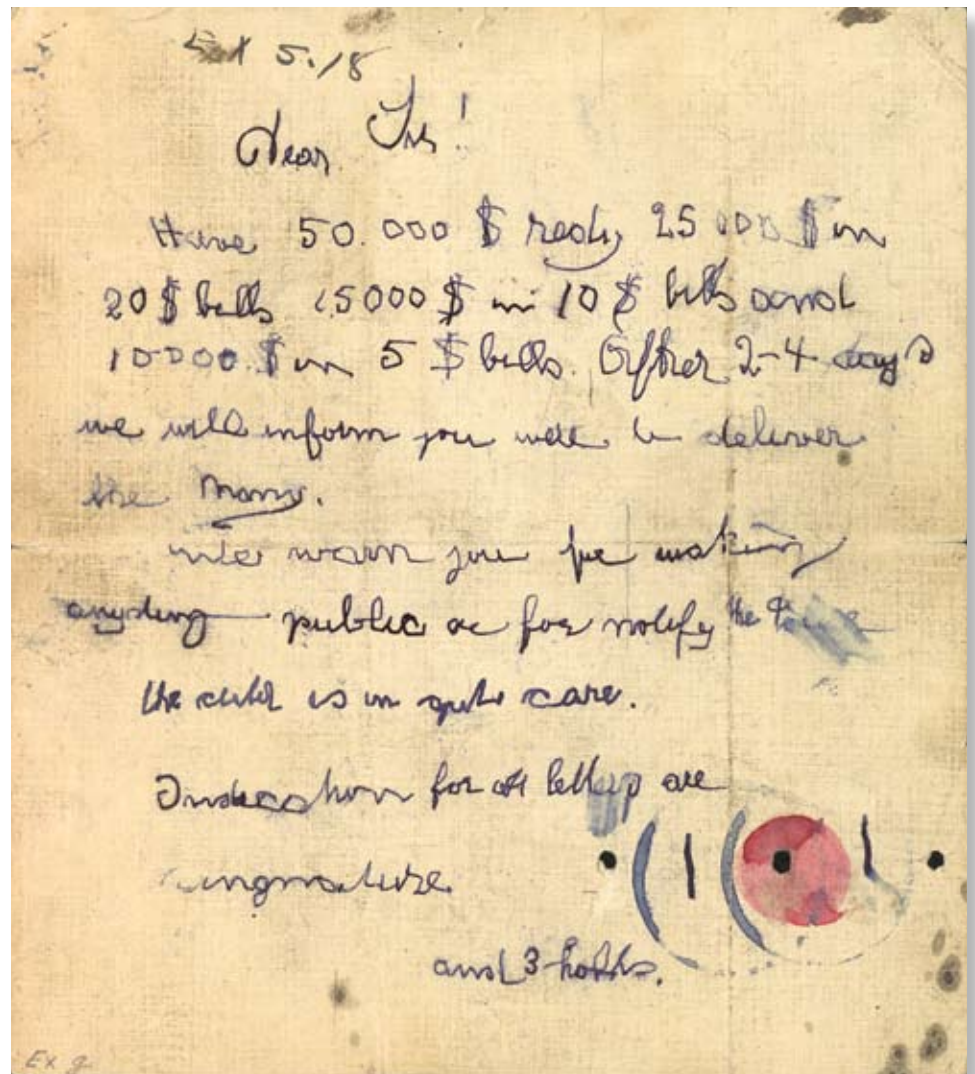 Dear Sir!
Have 50.000 $ redy 25 000 $ in
20 $ bills 15000 $ in 10 $ bills and
10000 $ in 5 $ bills. After 2-4 days
we will inform you were to deliver
the Mony.
We warn you for making
anyding public or for notify the Police
the child is in gut care.
Indication for all letters are
singnature
and 3 holds.
Ex